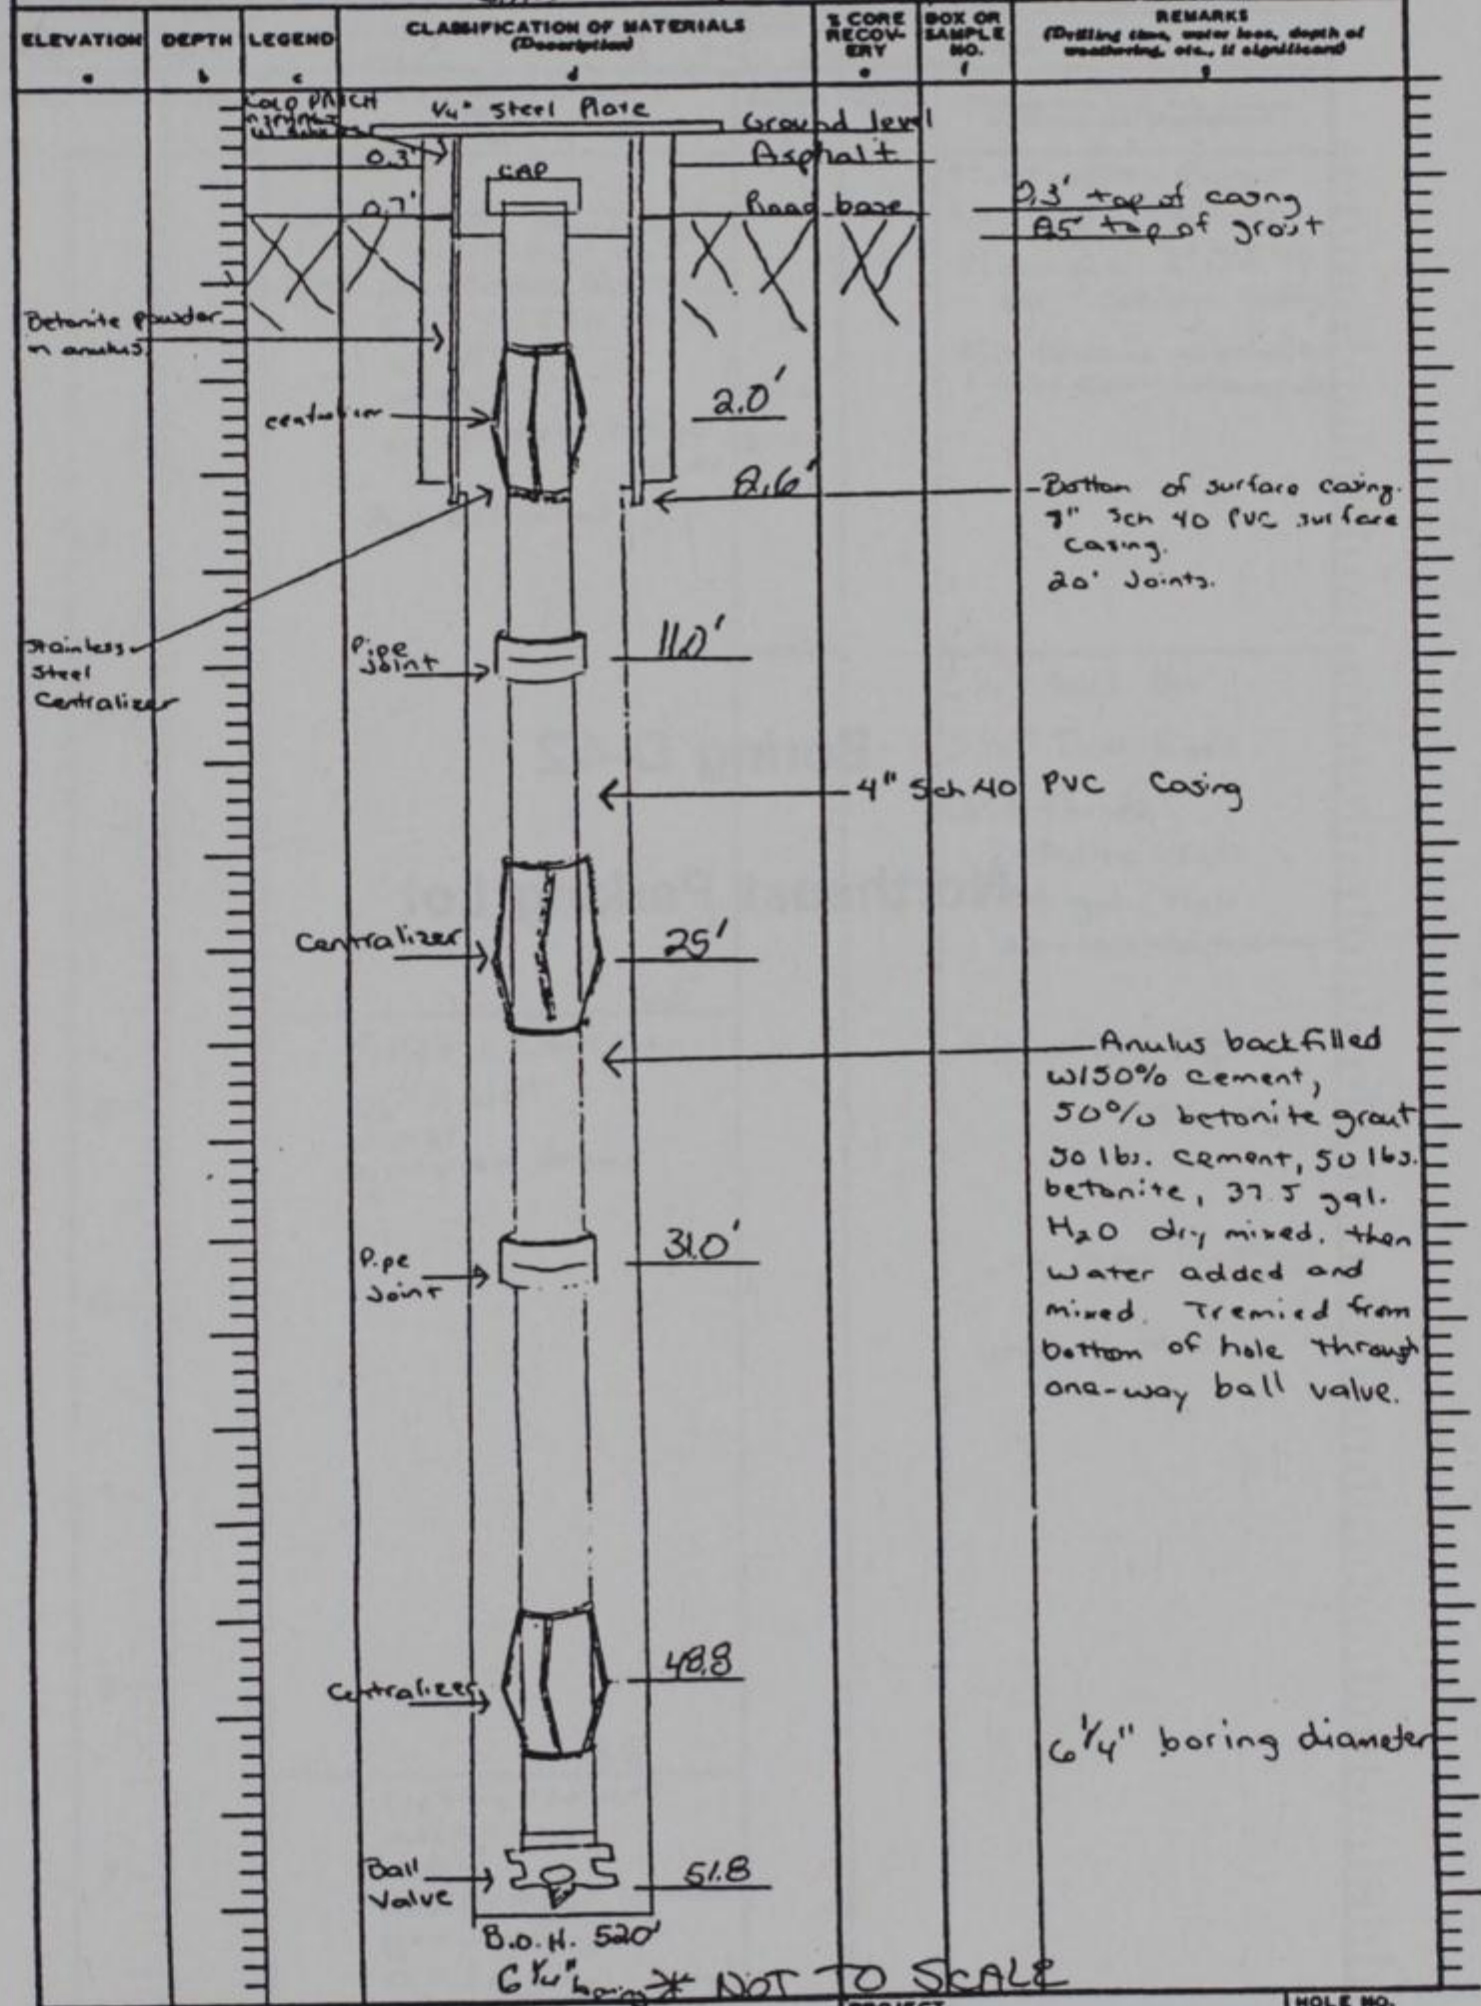 ELEVATION DEPTH LEGEND CLASSIFICATION OF MATERIALS % CORE BOX OR REMARKS
(Description) RECOV- SAMPLE (Drilling time, water loss, depth of
ERY NO. weathering, etc., if significant)
a b c d e f g
COLD PATCH
1/4" Steel Plate
Ground level
0.3'
Asphalt
CAP
0.7'
Road base
0.3' top of casing
top of grout
Betonite powder
in anulus
2.0'
2.6'
-Bottom of surface casing.
Sch 40 PVC surface
Casing.
20' Joints.
Stainless
Steel
Centralizer
Pipe
Joint
11.0'
4" Sch 40 PVC Casing
Centralizer
25'
Anulus backfilled
W/50% Cement,
50% betonite grout
50 lbs. cement, 50 lbs.
betonite, 37.5 gal.
H2O dry mixed. then
Water added and
mixed. Tremied from
bottom of hole through
one-way ball valve.
Pipe
Joint
31.0'
Centralizer
48.8
6 1/4" boring diameter
Ball
Valve
51.8
B.O.H. 52.0'
6 1/4" boring
* NOT TO SCALE
PROJECT
HOLE NO.